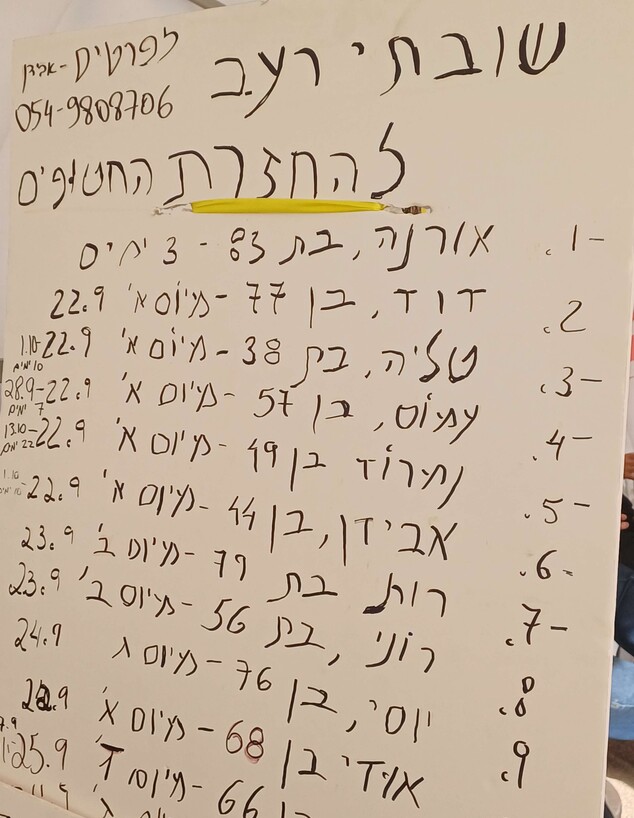 שובתי רעב
לפרטים - אבידן
054-9808706
להחזרת החטופים
1- אורנה, בת 83 - 3 ימים
2. דוד, בן 77 - מיום א' 22.9
3- טליה, בת 38 - מיום א' 22.9 - 1.10
10 ימים
4- עמוס, בן 57 - מיום א' 22.9 - 28.9
7 ימים
5- נמרוד בן 49 - מיום א' 22.9 - 13.10
22 ימים
6- אבידן, בן 44 - מיום א' 22.9 - 1.10
7- רות בת 79 - מיום ב' 23.9
8. רוני, בת 56 - מיום ב' 23.9
9. יוסי, בן 76 - מיום ג 24.9
אודי בן 68 - מיום א' 22.9
בן 66 - מיום ד' 25.9